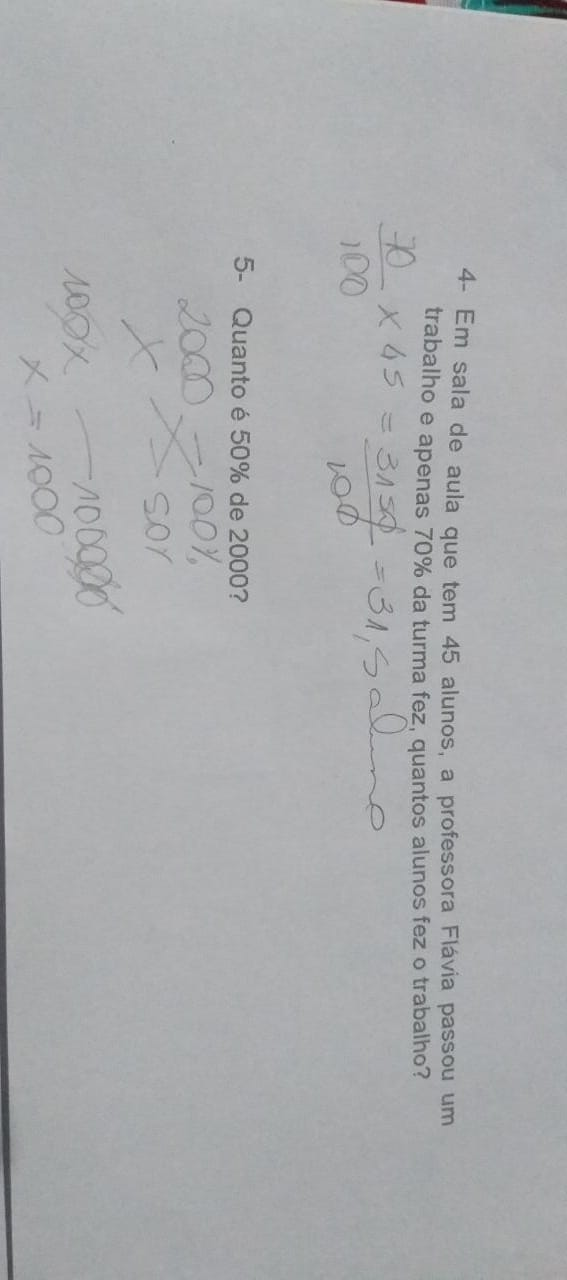 4- Em sala de aula que tem 45 alunos, a professora Flávia passou um
trabalho e apenas 70% da turma fez, quantos alunos fez o trabalho?
70/100 x 45 = 3150/100 = 31,5 aluno
5- Quanto é 50% de 2000?
2000 = 100%
x = 50%
100x — 100000
x = 1000